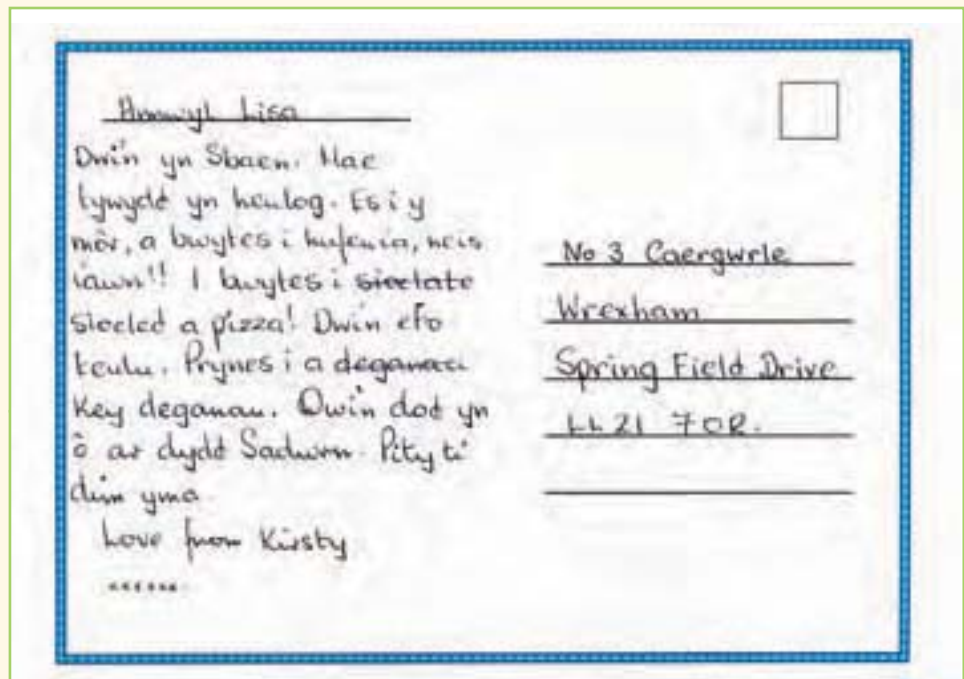 Annwyl Lisa
Dwi'n yn Sbaen. Mae
tywydd yn heulog. Es i y
môr, a bwytes i hufenia, neis
iawn!! I bwytes i sioclate
siocled a pizza! Dwin efo
teulu. Prynes i a deganau
Key deganau. Dwin dod yn
ô ar dydd Sadwrn. Pity ti
dim yma.
Love from Kirsty
No 3 Caergwrle
Wrexham
Spring Field Drive
LL21 7OR.